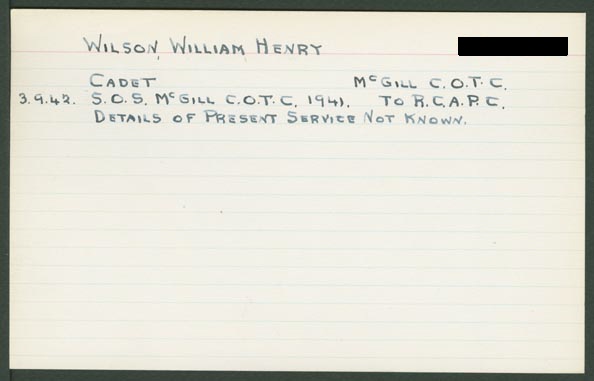 WILSON, WILLIAM HENRY
CADET McGILL C.O.T.C.
3.9.42. S.O.S. McGILL C.O.T.C. 1941. TO R.C.A.P.C.
DETAILS OF PRESENT SERVICE NOT KNOWN.